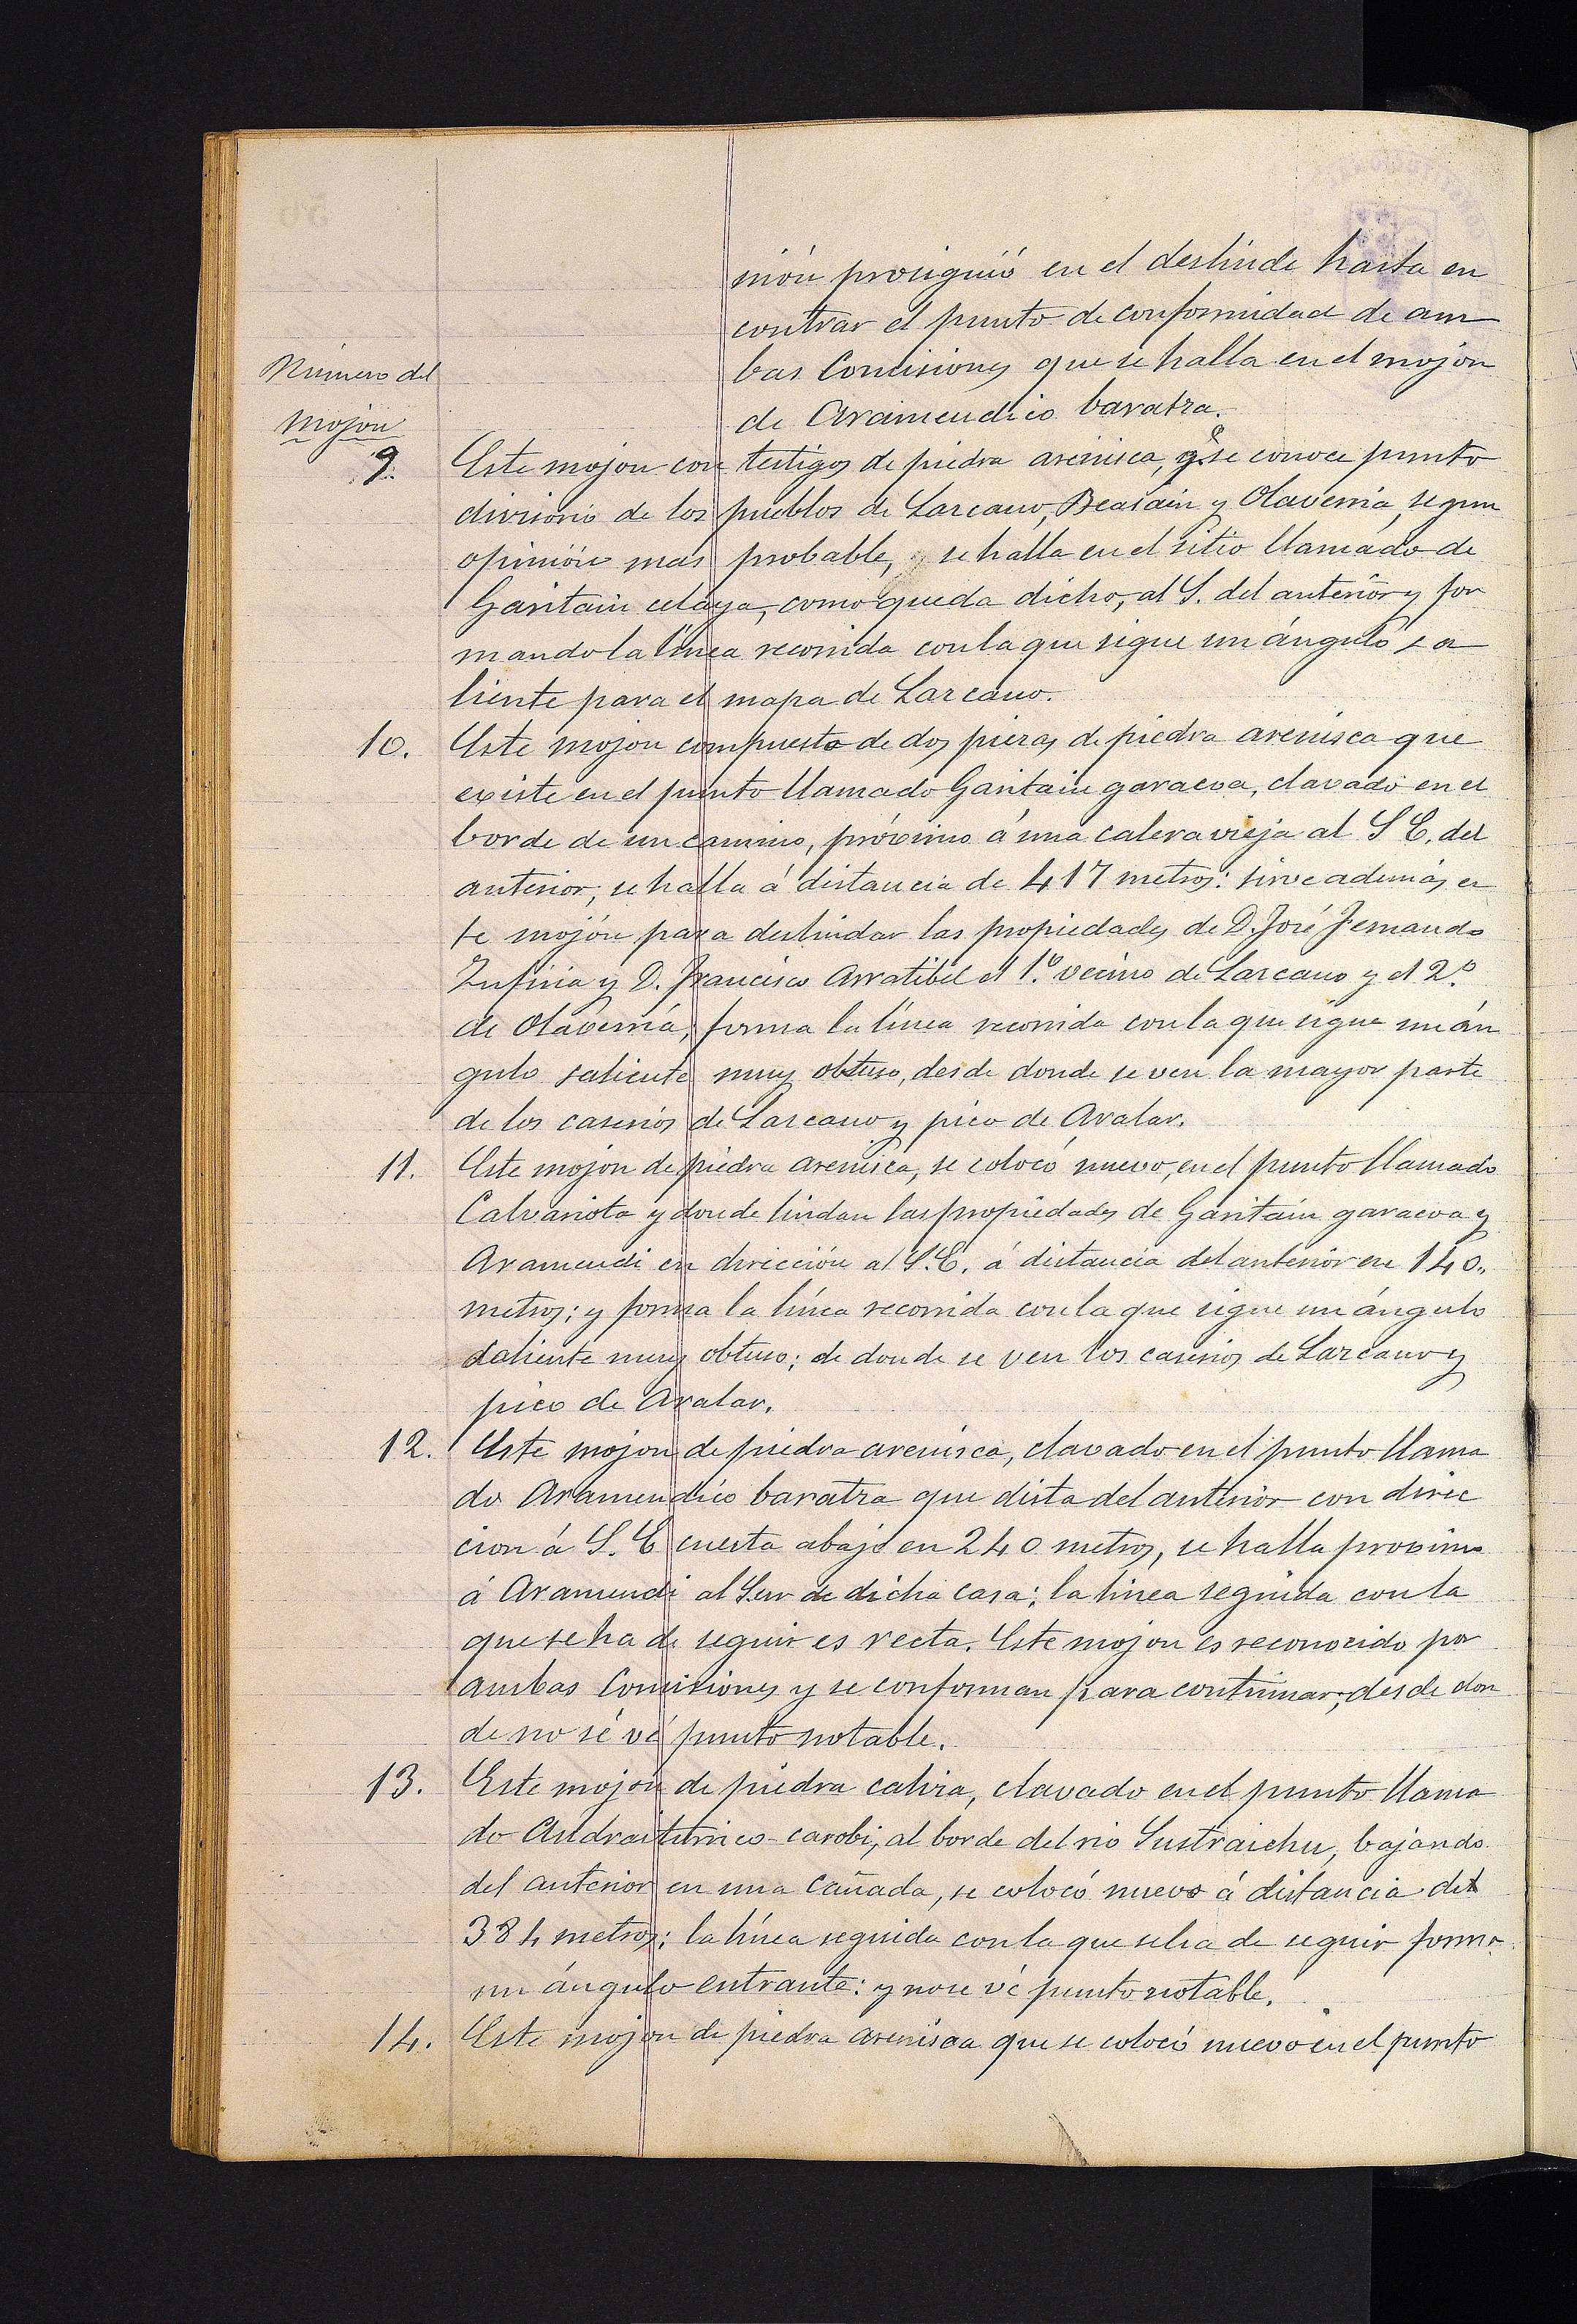 nión prosiguió en el deslinde hasta en
contrar el punto de conformidad de am
bas Comisiones que se halla en el mojon
de Aramendico baratza.
Número del
Mojon
9. Este mojon con testigos de piedra arenisca, q.e se conoce punto
divisorio de los pueblos de Lazcano, Beasain y Olaverria, segun
opinión mas probable, se halla en el sitio llamado de
Garitain celaya, como queda dicho, al S. del anterior y for
mando la línea recorrida con la que sigue un ángulo sa
liente para el mapa de Lazcano.
10. Este mojon compuesto de dos piezas de piedra arenisca que
existe en el punto llamado Garitain garacoa, clavado en el
borde de un camino, próximo á una calera vieja al S E. del
anterior, se halla á distancia de 417 metros: sirve además es
te mojón para deslindar las propiedades de D. José Fernando
Zufiria y D. Francisco Arratibel el 1.º vecino de Lazcano y el 2.º
de Olaverría, forma la línea recorrida con la que sigue un án
gulo saliente muy obtuso, desde donde se ven la mayor parte
de los caserios de Lazcano y pico de Aralar.
11. Este mojon de piedra arenisca, se colocó nuevo, en el punto llamado
Calvariota y donde lindan las propiedades de Garitain garacoa y
Aramendi en dirección al S.E. á distancia del anterior en 140,,
metros; y forma la línea recorrida con la que sigue un ángulo
saliente muy obtuso; de donde se ven los caserios de Lazcano y
pico de Aralar.
12. Este mojon de piedra arenisca, clavado en el punto llama
do Aramendico baratza que dista del anterior con direc
cion á S. E cuesta abajo en 240 metros, se halla proximo
á Aramendi al Sur de dicha casa; la linea seguida con la
que se ha de seguir es recta. Este mojon es reconocido por
ambas Comisiones y se conforman para continuar; desde don
de no sé vé punto notable.
13. Este mojón de piedra caliza, clavado en el punto llama
do carobi, al borde del rio Sustraichu, bajando
del anterior en una cañada, se colocó nuevo á distancia del
384 metros; la línea seguida con la que se ha de seguir forma
un ángulo entrante: y no se vé punto notable.
14. Este mojon de piedra arenisca que se colocó nuevo en el punto